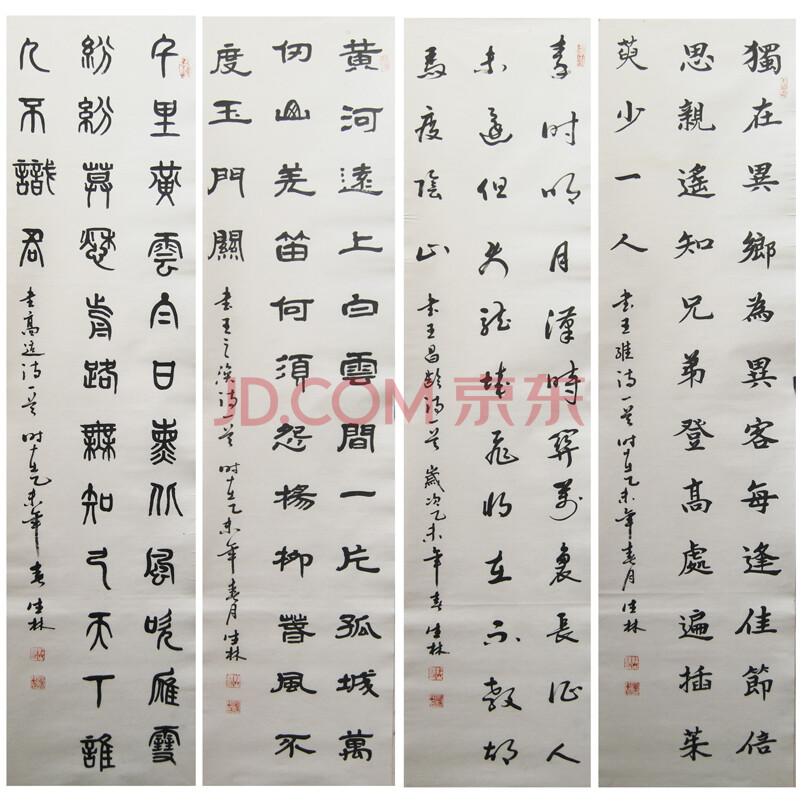 獨在異鄉為異客每逢佳節倍
思親遙知兄弟登高處遍插茱
萸少一人
書王維詩一首 时在乙未年春月 生林
秦时明月漢時關萬裏長征人
未還但使龍城飛将在不教胡
馬度陰山
書王昌齡詩一首 歲次乙未年春 生林
黃河遠上白雲間一片孤城萬
仞山羌笛何須怨楊柳春風不
度玉門關
書王之渙詩一首 时在乙未年春月 生林
千里黃雲白日曛北風吹雁雪
紛紛莫愁前路無知己天下誰
人不識君
書高适詩一首 时在乙未年春 生林
JD.COM 京东